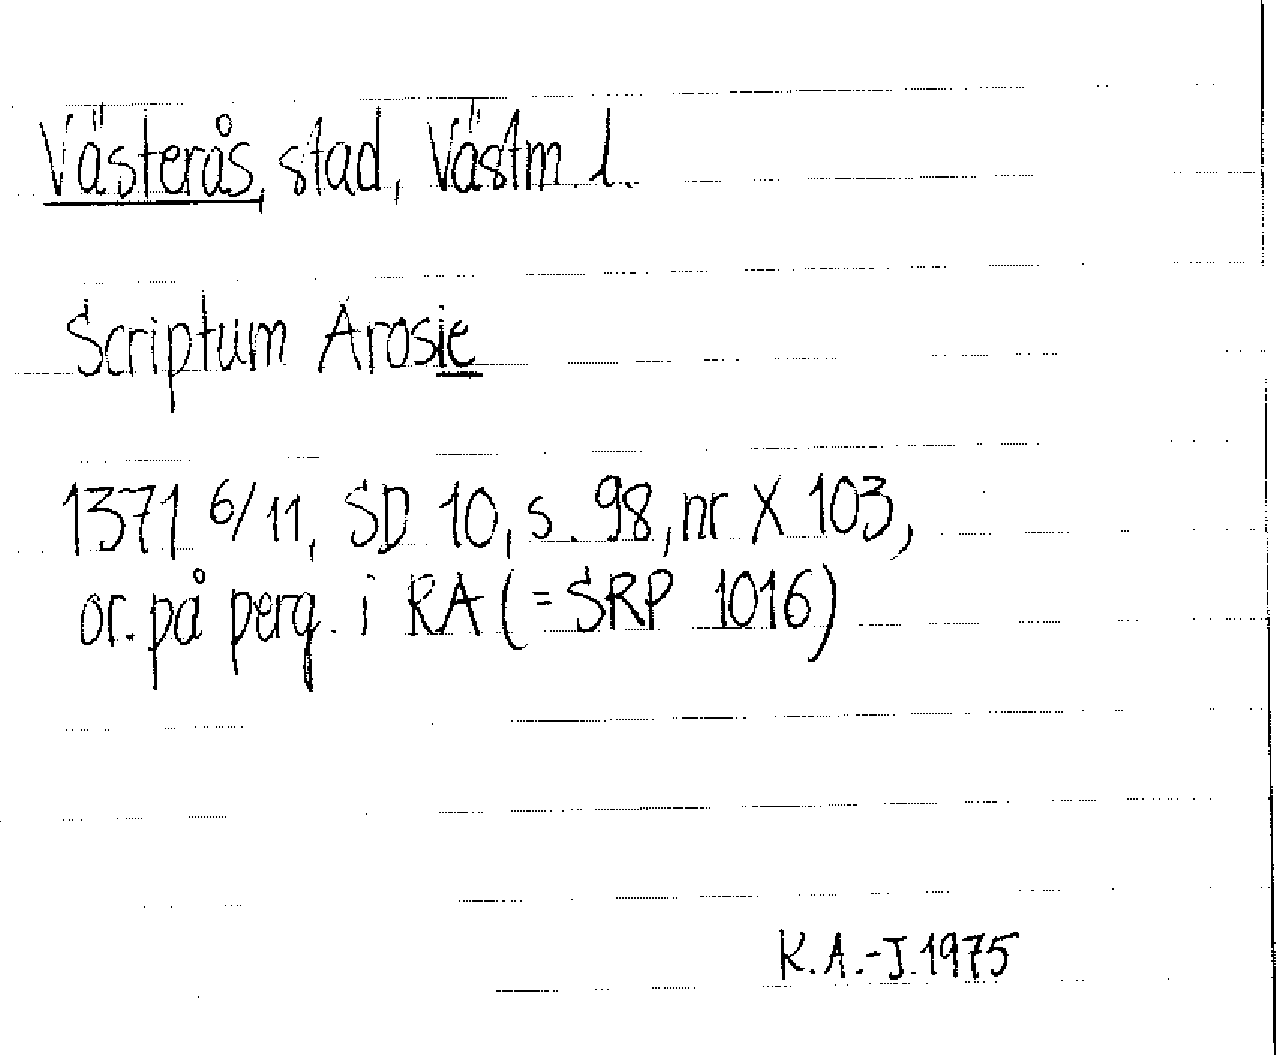 Västerås, stad, Västm. l.
Scriptum Arosie
1371 6/11, SD 10, s. 98, nr X 103,
or. på perg. i RA (=SRP 1016)
K.A.-J. 1975